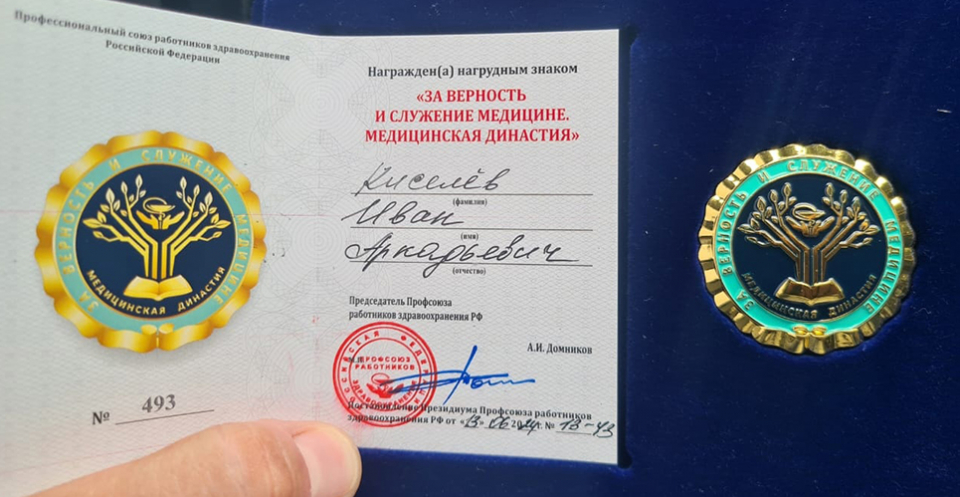 Профессиональный союз работников здравоохранения
Российской Федерации
ЗА ВЕРНОСТЬ И СЛУЖЕНИЕ МЕДИЦИНЕ
МЕДИЦИНСКАЯ ДИНАСТИЯ
№ 493
Награжден(а) нагрудным знаком
«ЗА ВЕРНОСТЬ
И СЛУЖЕНИЕ МЕДИЦИНЕ.
МЕДИЦИНСКАЯ ДИНАСТИЯ»
Киселёв
(фамилия)
Иван
(имя)
Аркадьевич
(отчество)
Председатель Профсоюза
работников здравоохранения РФ
А.И. Домников
ПРОФСОЮЗ
РАБОТНИКОВ
ЗДРАВООХРАНЕНИЯ
Постановление Президиума Профсоюза работников
здравоохранения РФ от «13» 06 20 г. № 18-43
ЗА ВЕРНОСТЬ И СЛУЖЕНИЕ МЕДИЦИНЕ
МЕДИЦИНСКАЯ ДИНАСТИЯ